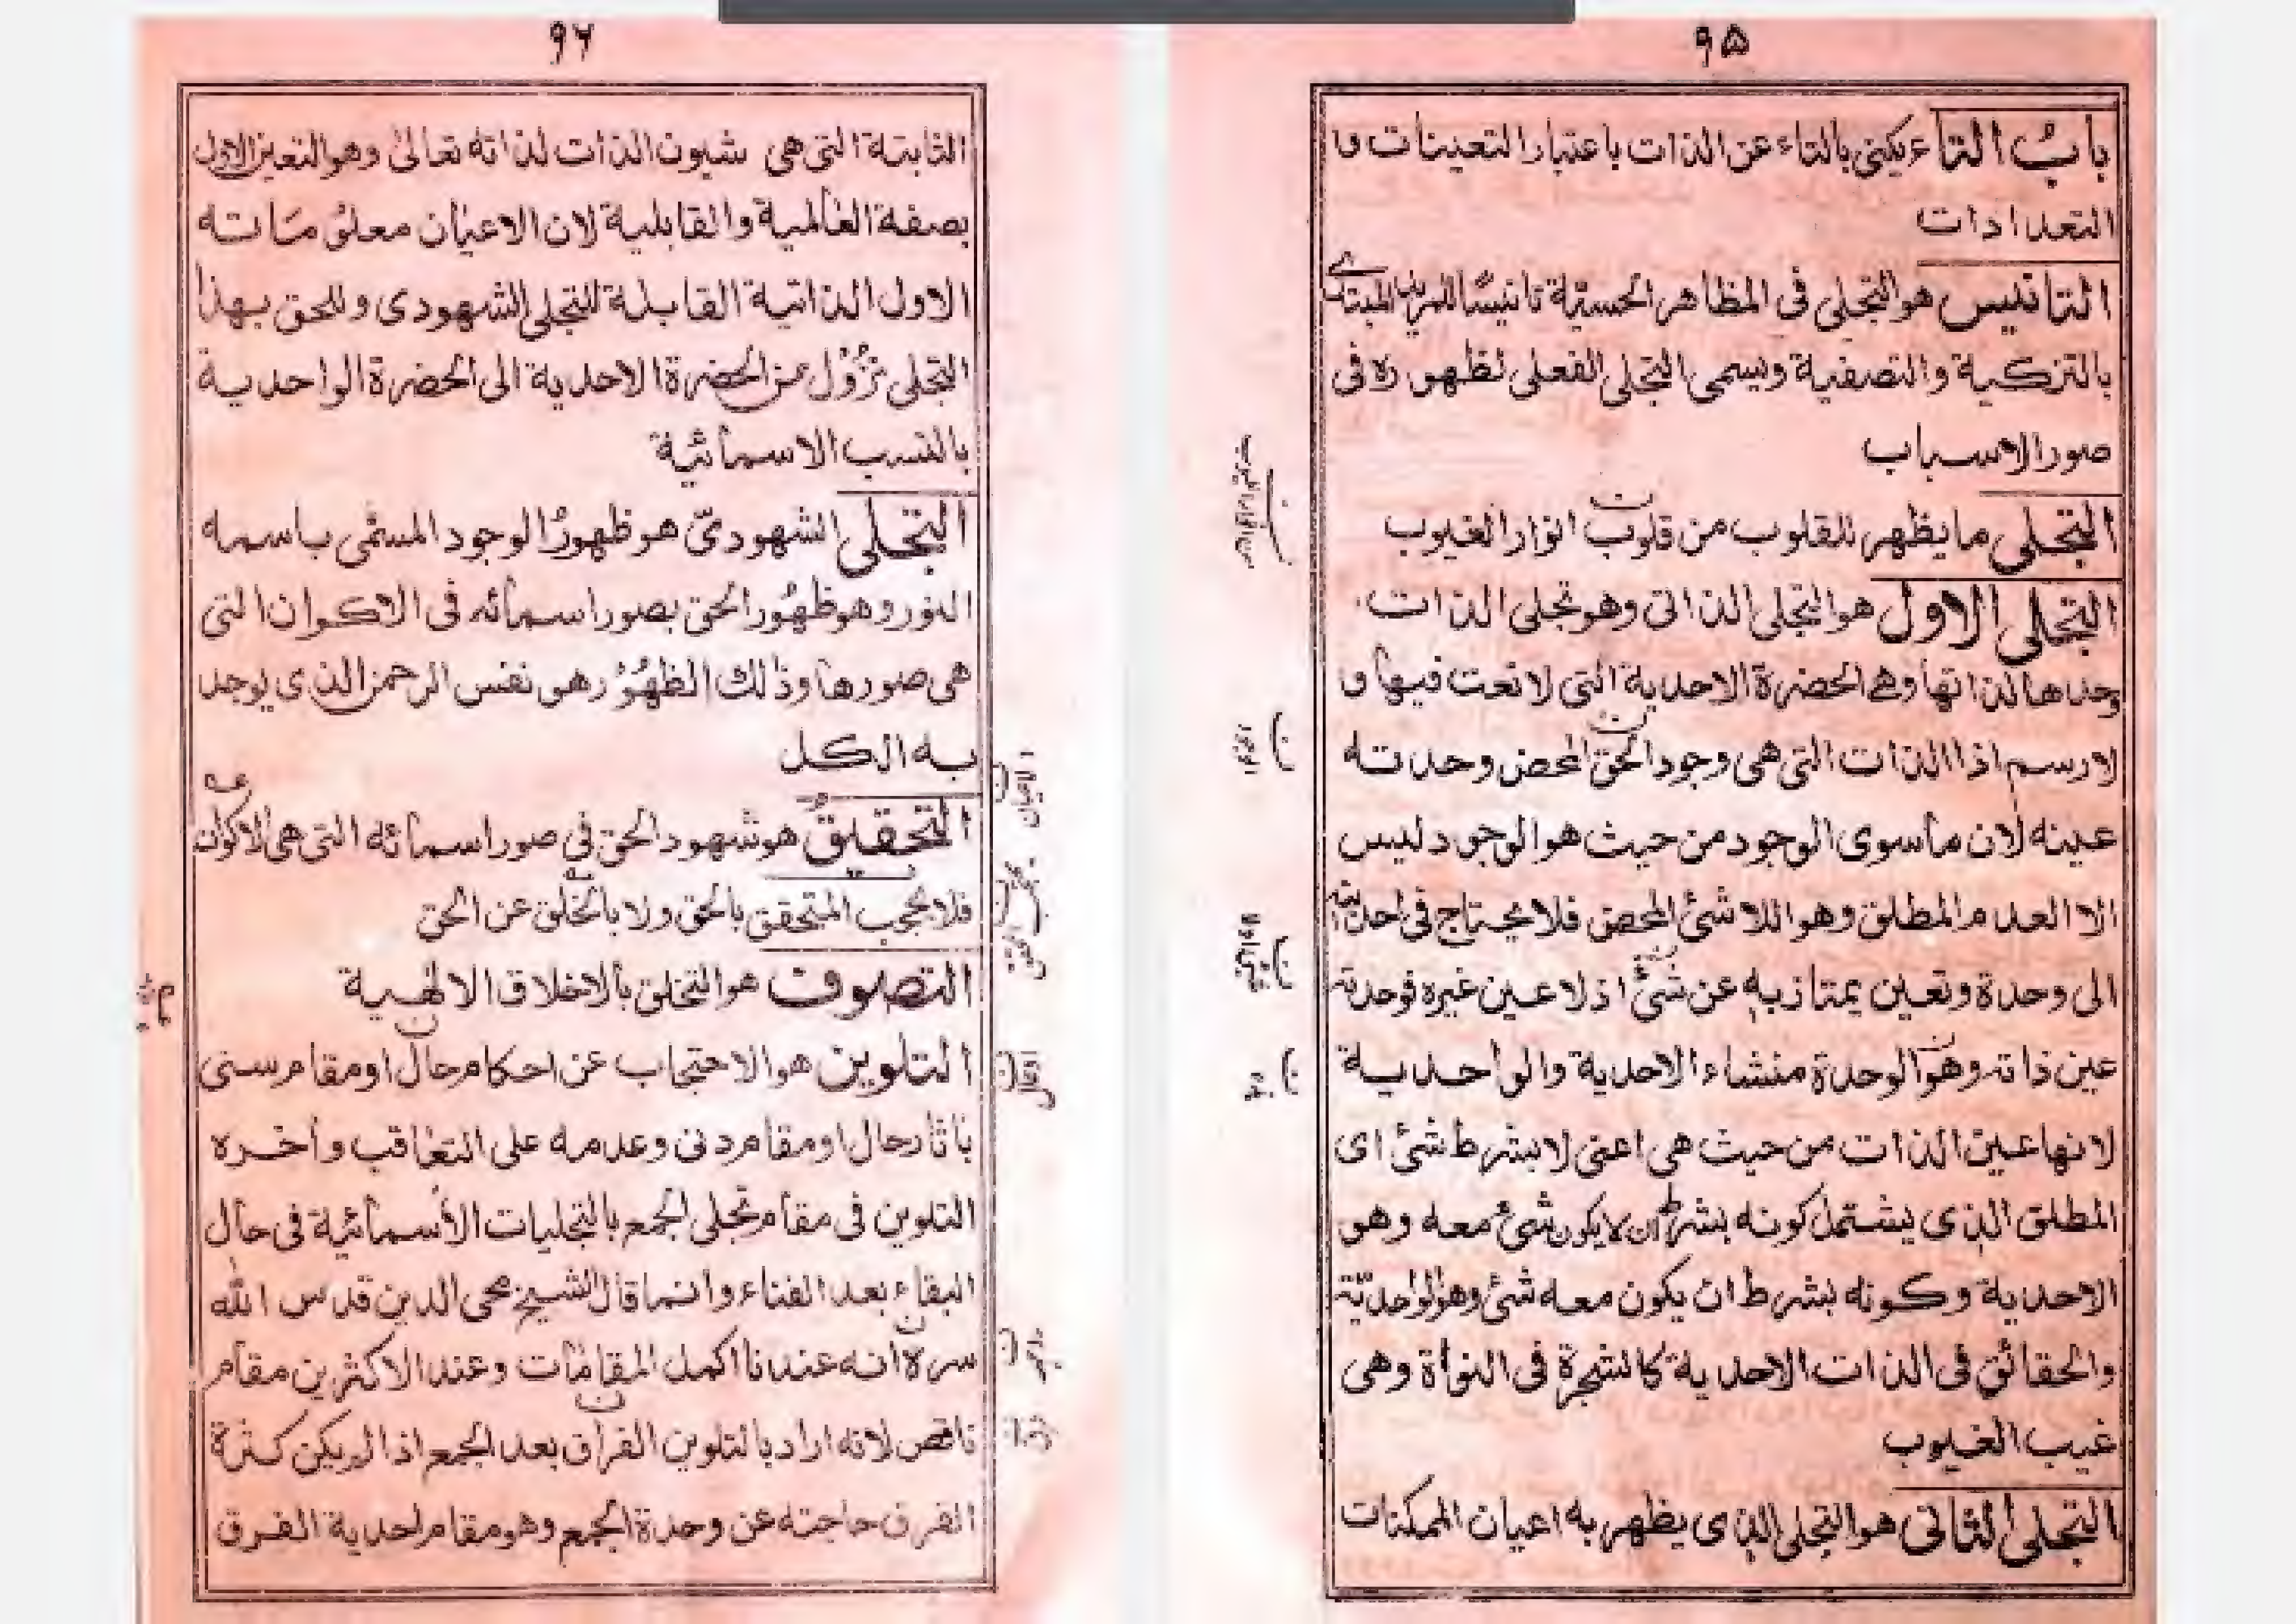 ۹۵
باب التاء يكنى بالتاء عن الذات باعتبار التعينات و
التعدادات
التانيس هو التجلى فى المظاهر الحسية تانيسًا للمريد المبتدى
بالتزكية والتصفية ويسمى التجلى الفعلى لظهوره فى
صور الاسباب
التجلى ما يظهر للقلوب من قلوب انوار الغيوب
التجلى الاول هو التجلى الذاتى وهو تجلى الذات
وحدها لذاتها وهى الحضرة الاحدية التى لا نعت فيها و
لا رسم اذا الذات التى هى وجود الحق المحض وحدته
عينه لان ما سوى الوجود من حيث هو الوجود ليس
الا العدم المطلق وهو اللا شئ المحض فلا يحتاج فى احديته
الى وحدة وتعين يمتاز به عن شئ اذ لا عين غيره فوحدته
عين ذاته وهو الوحدة منشاء الاحدية والواحدية
لانها عين الذات من حيث هى اعنى لا بشرط شئ اى
المطلق الذى يشتمل كونه بشرط ان لا يكون شئ معه وهو
الاحدية وكونه بشرط ان يكون معه شئ وهو الواحدية
والحقائق فى الذات الاحدية كالشجرة فى النواة وهى
غيب الغيوب
التجلى الثانى هو التجلى الذى يظهر به اعيان الممكنات
۹۶
الثابتة التى هى شيون الذات لذاته تعالى وهو التعين الاول
بصفة العالمية والقابلية لان الاعيان معلوماته
الاول الذاتية القابلة للتجلى الشهودى وللحق بهذا
التجلى نزول من الحضرة الاحدية الى الحضرة الواحدية
بالنسب الاسمائية
التجلى الشهودىّ هو ظهور الوجود المسمى باسمه
النور وهو ظهور الحق بصور اسمائه فى الاكوان التى
هى صورها وذلك الظهور هو نفس الرحمن الذى يوجد
به الكل
التحقيق هو شهود الحق فى صور اسمائه التى هى الاكوان
فلا يحجب المتحقق بالحق ولا بالخلق عن الحق
التصوف هو التخلق بالاخلاق الالهية
التلوين هو الاحتجاب عن احكام حال او مقام سنى
باثار حال او مقام دنى وعدمه على التعاقب واخره
التلوين فى مقام تجلى الجمع بالتجليات الأسمائية فى حال
البقاء بعد الفناء وانما قال الشيخ محى الدين قدس الله
سره انه عندنا اكمل المقامات وعند الاكثرين مقام
ناقص لانه اراد بالتلوين الفراق بعد الجمع اذا لم يكن كثرة
الفرق حاجته عن وحدة الجمع وهو مقام احدية الفرق